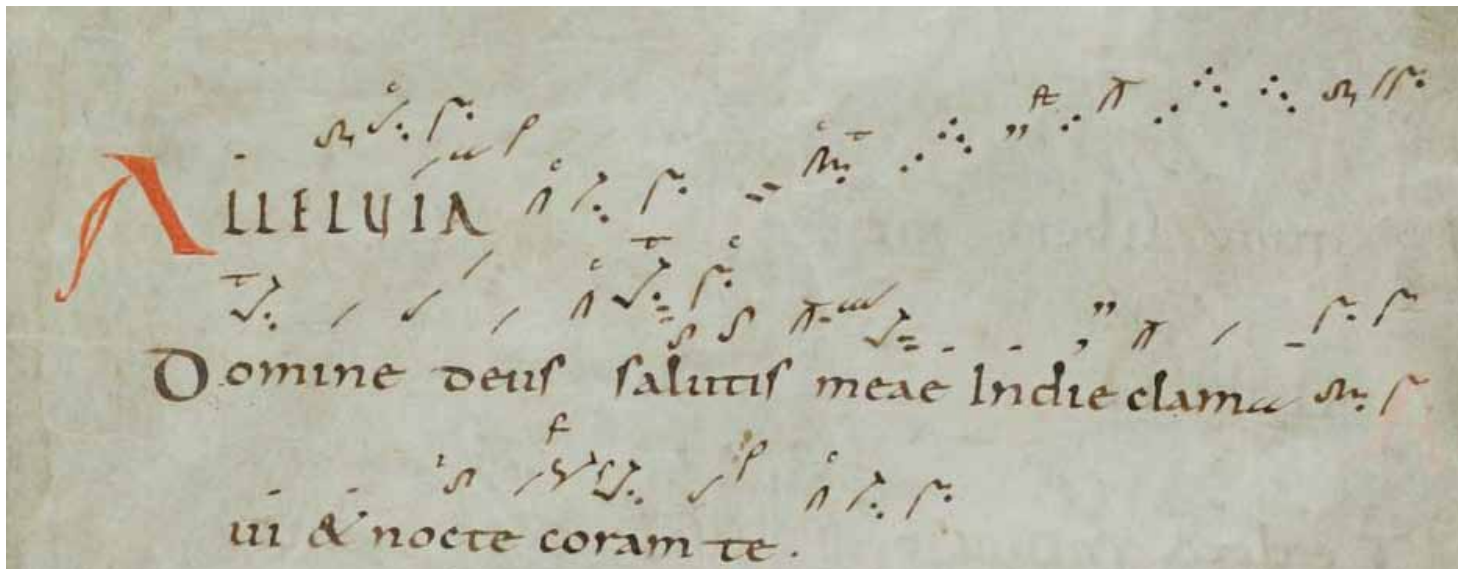 ALLELUIA
Domine deus salutis meae Indie clama
ui & nocte coram te .